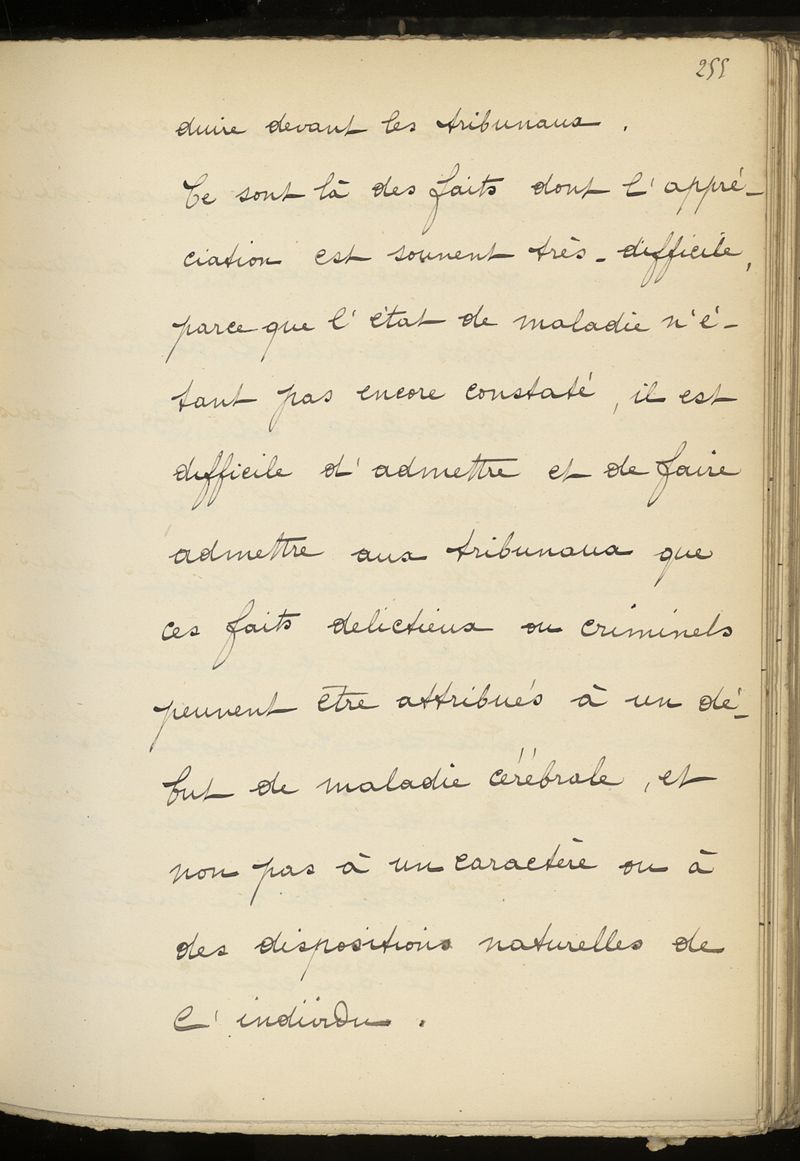 255
duire devant les tribunaux .
Ce sont là des faits dont l'appré-
ciation est souvent très-difficile,
parce que l'état de maladie n'é-
tant pas encore constaté, il est
difficile d'admettre et de faire
admettre aux tribunaux que
ces faits delictieux ou criminels
peuvent être attribués à un dé-
but de maladie cérébrale, et
non pas à un caractère ou à
des dispositions naturelles de
l'individu .